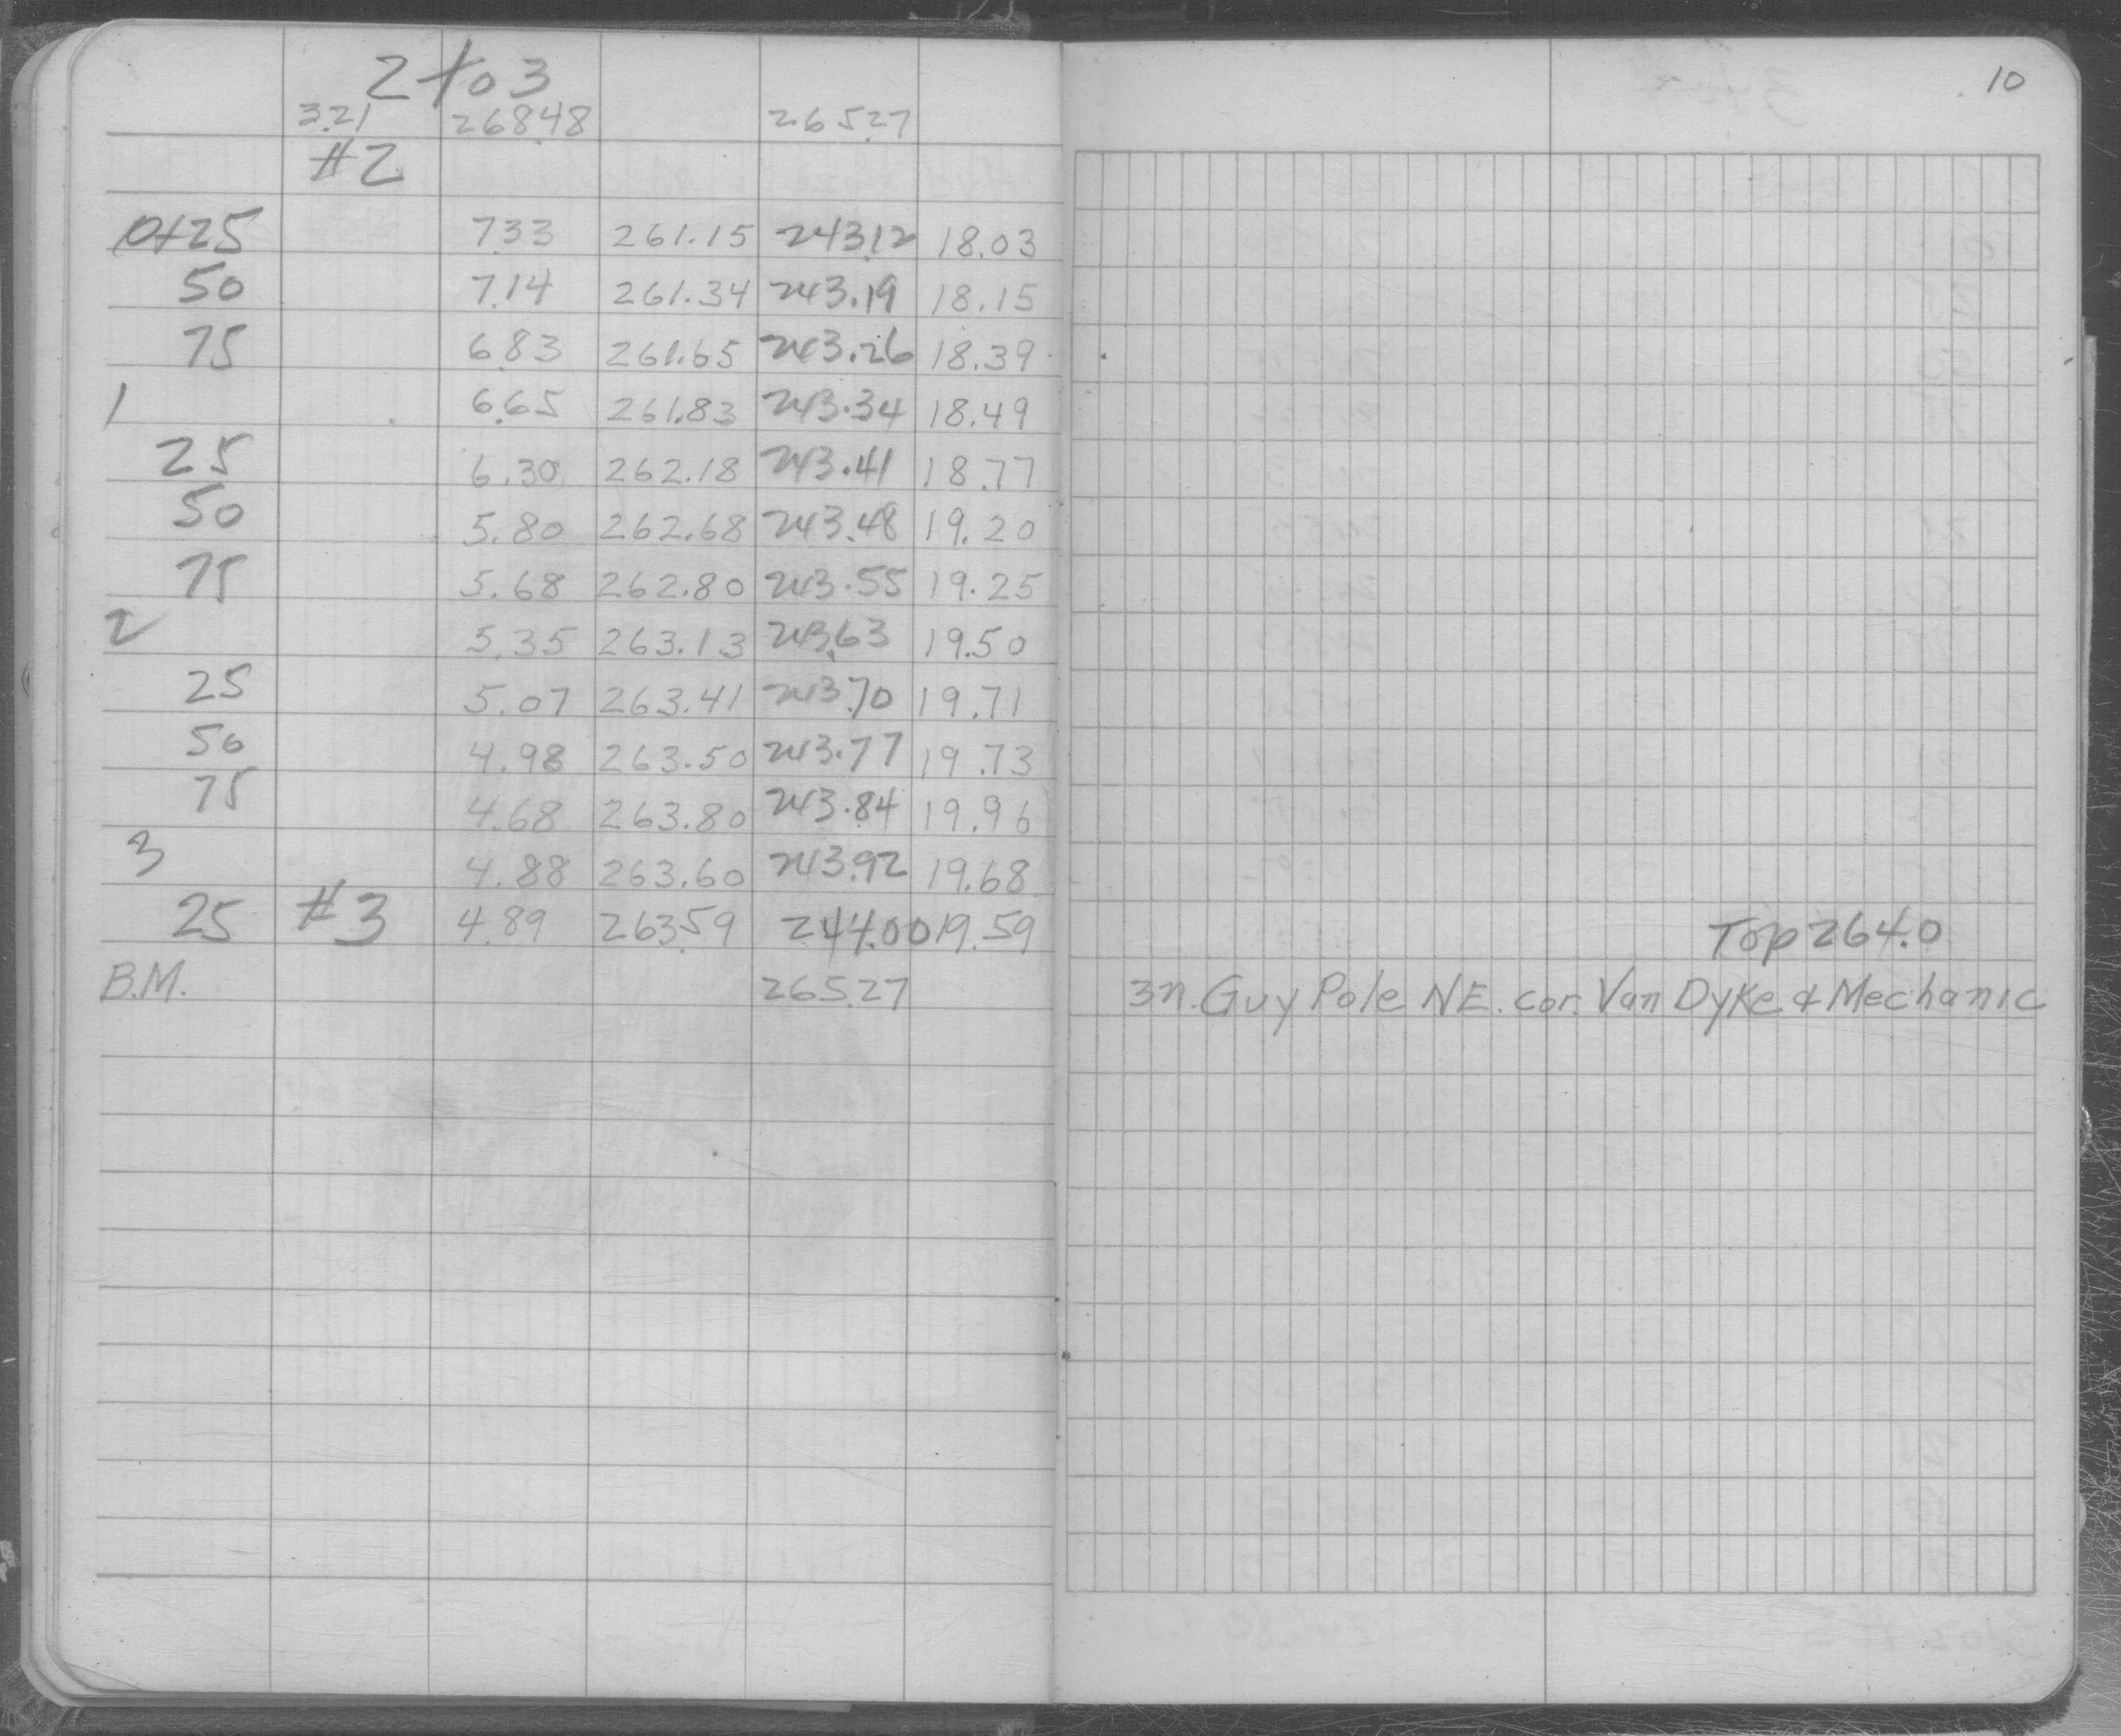 2 to 3
3.21 268.48 265.27
#2
0+25 7.33 261.15 243.12 18.03
50 7.14 261.34 243.19 18.15
75 6.83 261.65 243.26 18.39
1 6.65 261.83 243.34 18.49
25 6.30 262.18 243.41 18.77
50 5.80 262.68 243.48 19.20
75 5.68 262.80 243.55 19.25
2 5.35 263.13 243.63 19.50
25 5.07 263.41 243.70 19.71
50 4.98 263.50 243.77 19.73
75 4.68 263.80 243.84 19.96
3 4.88 263.60 243.92 19.68
25 #3 4.89 263.59 244.00 19.59
B.M. 265.27
10
Top 264.0
3n. Guy Pole NE. cor. Van Dyke & Mechanic